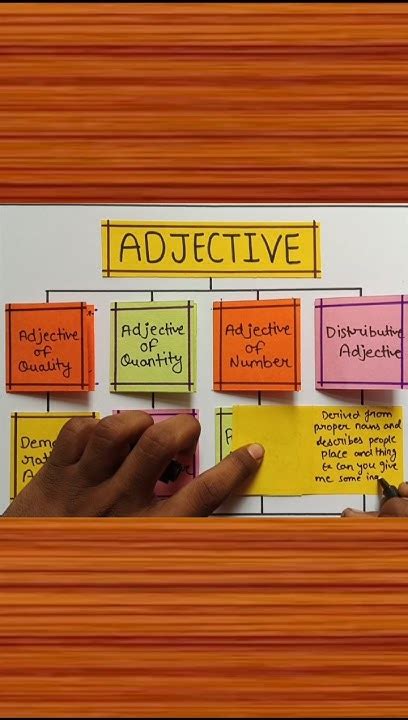 ADJECTIVE
Adjective
of
Quality
Adjective
of
Quantity
Adjective
of
Number
Distributive
Adjective
Dem
rat
A
Derived from
proper nouns and
describes people
place and thing
can you give
me some